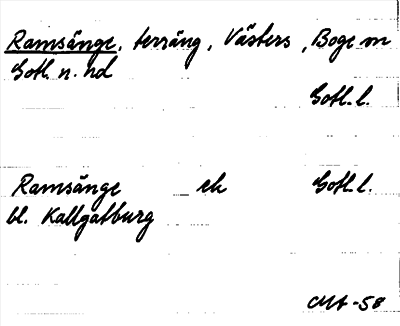 Ramsänge, terräng, Västers, Boge sn
Gotl. n. hd
Gotl. l.
Ramsänge ek Gotl. l.
bl. Kallgatburg
-58